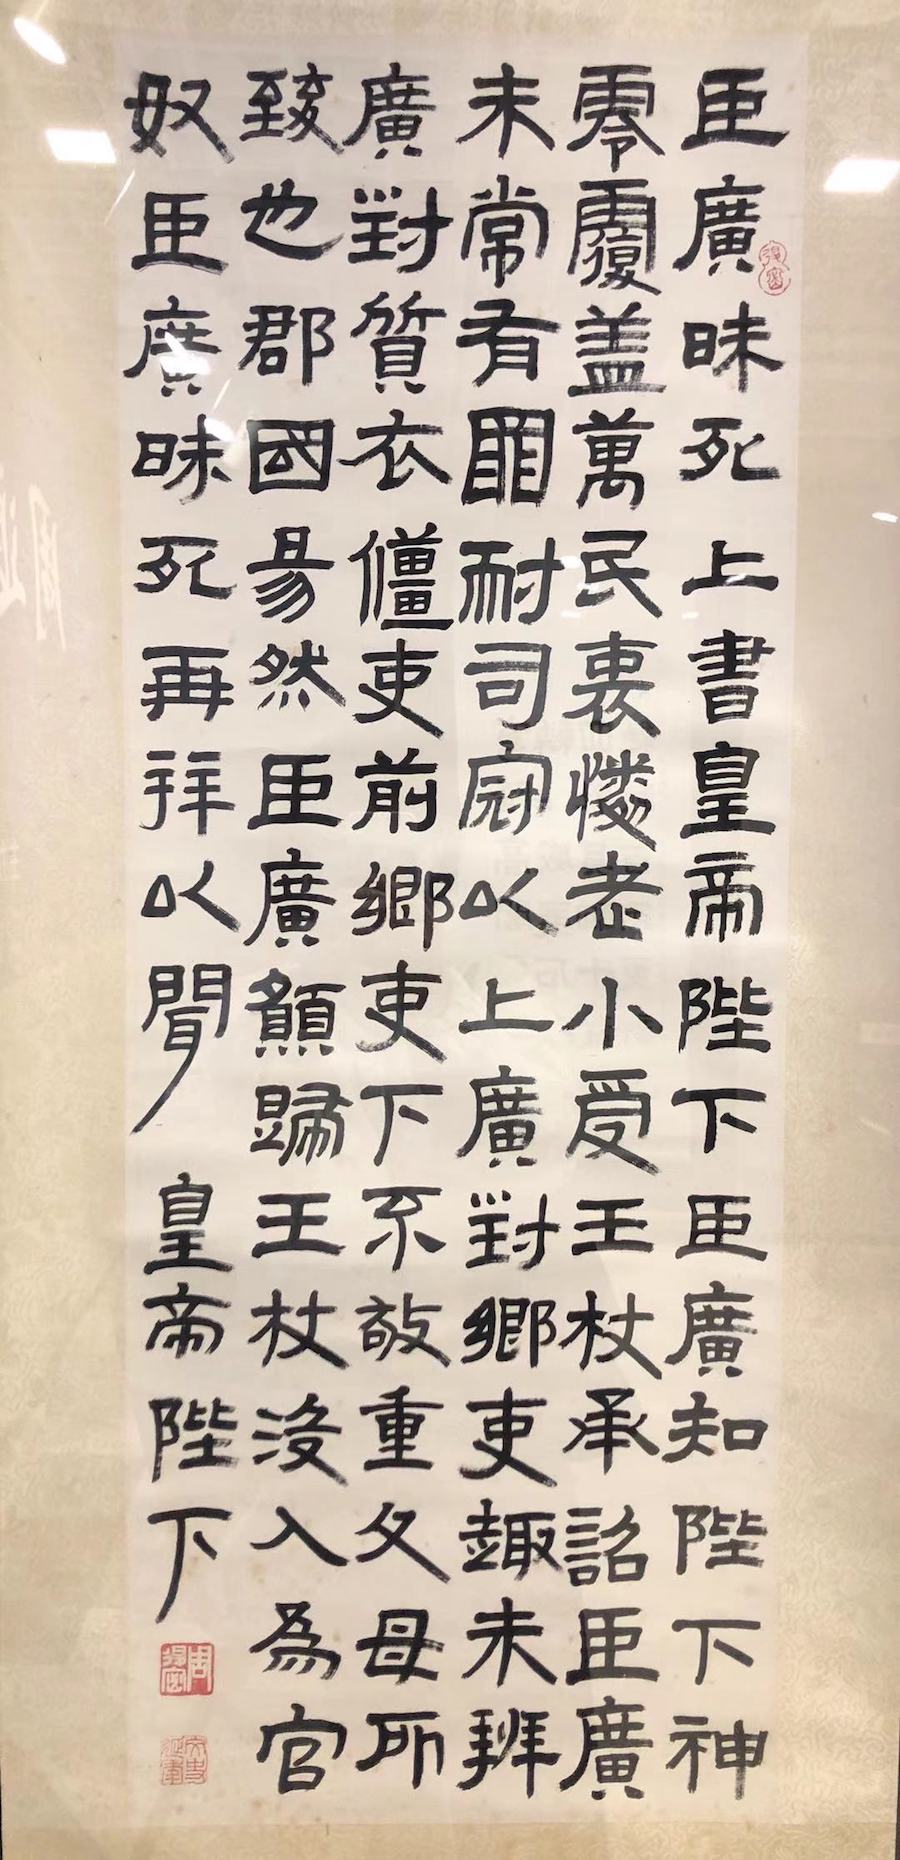 臣廣昧死上書皇帝陛下臣廣知陛下神
零覆盖萬民哀憐老小受王杖承詔臣廣
未常有罪耐司寇以上廣對鄉吏趣未辨
廣對質衣僵吏前鄉吏吏下不敬重父母所
致也郡國昜然臣廣願歸王杖沒入為官
奴臣廣昧死再拜以聞 皇帝陛下